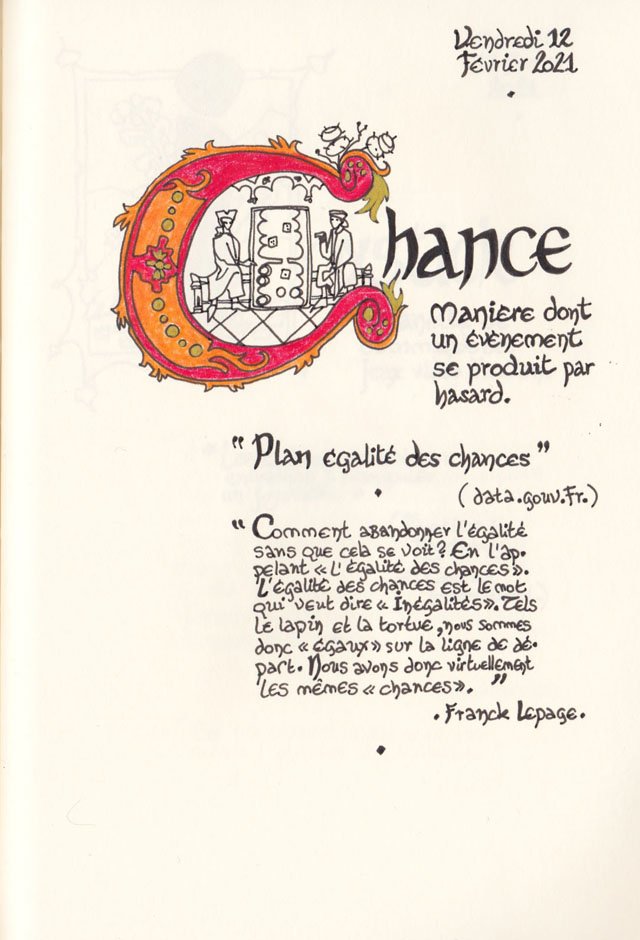 Vendredi 12
Février 2021
Chance
Manière dont
un évènement
se produit par
hasard.
" Plan égalité des chances "
(data.gouv.fr.)
" Comment abandonner l'égalité
sans que cela se voit? En l'ap-
pelant « L'égalité des chances ».
L'égalité des chances est le mot
qui veut dire « Inégalités ». Tels
le lapin et la tortue, nous sommes
donc « égaux » sur la ligne de dé-
part. Nous avons donc virtuellement
les mêmes « chances ». "
. Franck Lepage.